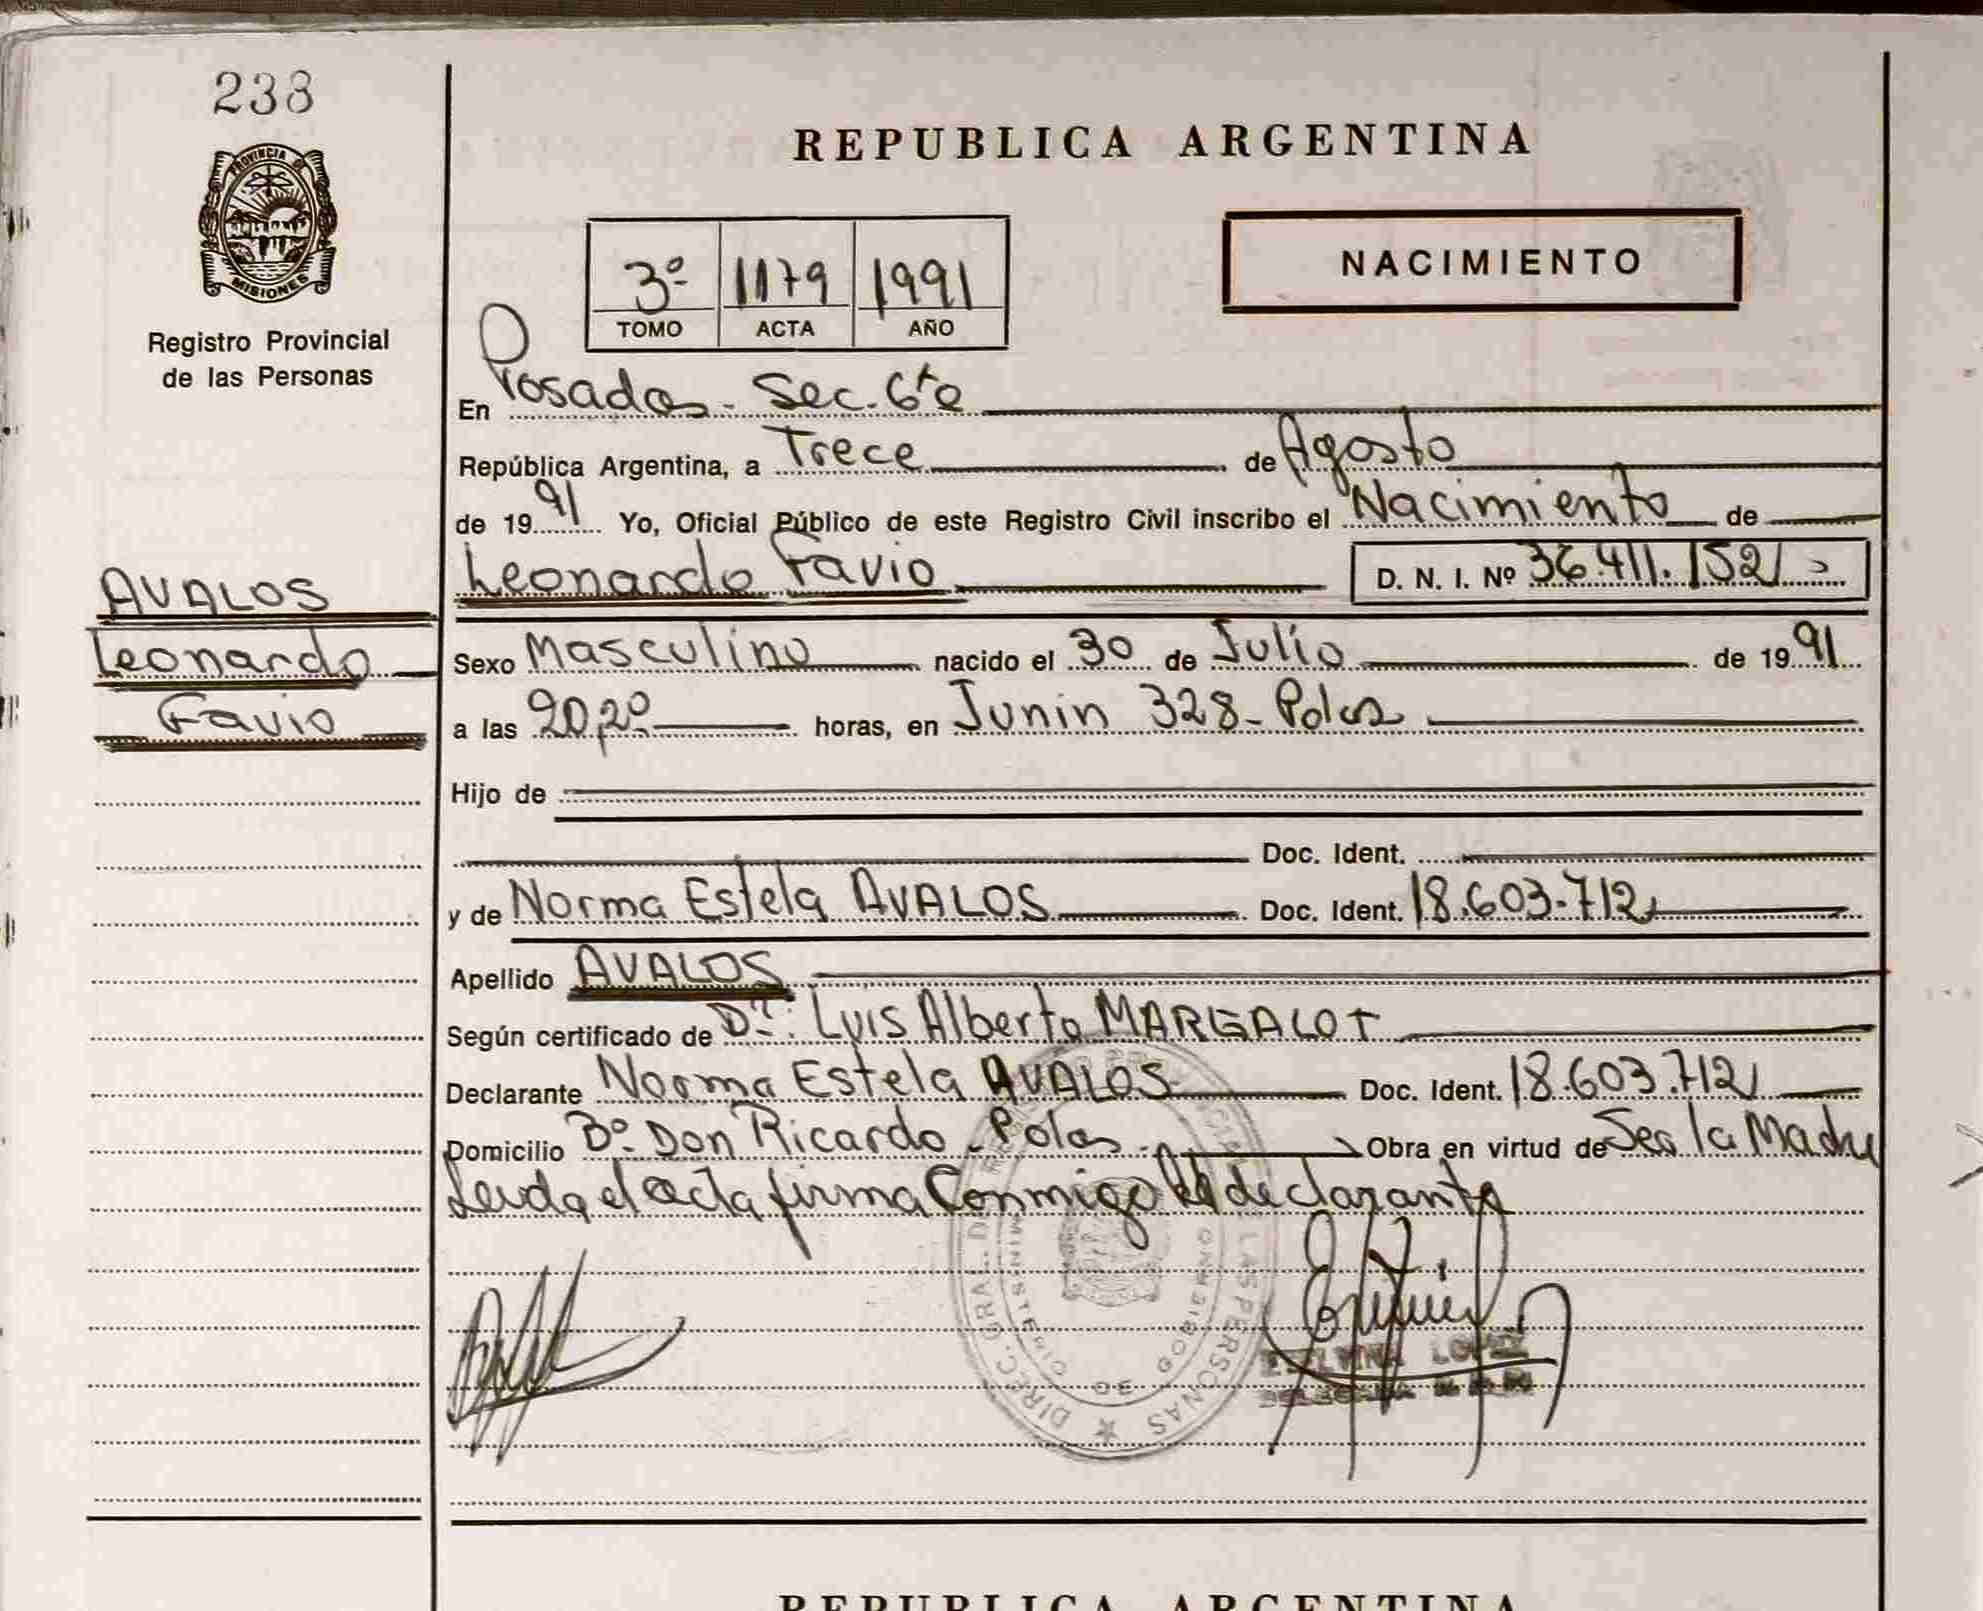 238
PROVINCIA D
MISIONES
Registro Provincial
de las Personas
REPUBLICA ARGENTINA
3º 1179 1991
TOMO ACTA AÑO
NACIMIENTO
En Posadas - Sec. 6ta
República Argentina, a Trece de Agosto
de 1991 Yo, Oficial Público de este Registro Civil inscribo el Nacimiento de
Leonardo Favio D. N. I. Nº 36.411.152
AVALOS
Leonardo
Favio
Sexo Masculino nacido el 30 de Julio de 1991
a las 20,20 horas, en Junin 328 - Pdas
Hijo de
Doc. Ident.
y de Norma Estela AVALOS Doc. Ident. 18.603.712
Apellido AVALOS
Según certificado de Dr.: Luis Alberto MARGALOT
Declarante Norma Estela AVALOS Doc. Ident. 18.603.712
Domicilio Bº Don Ricardo - Pdas - Obra en virtud de Ser la Madre
Leida el acta firma Conmigo la declarante
DIREC. GRAL. D LAS PERSONAS
MINISTERIO DE GOBIERNO
LOPEZ
REPUBLICA ARGENTINA